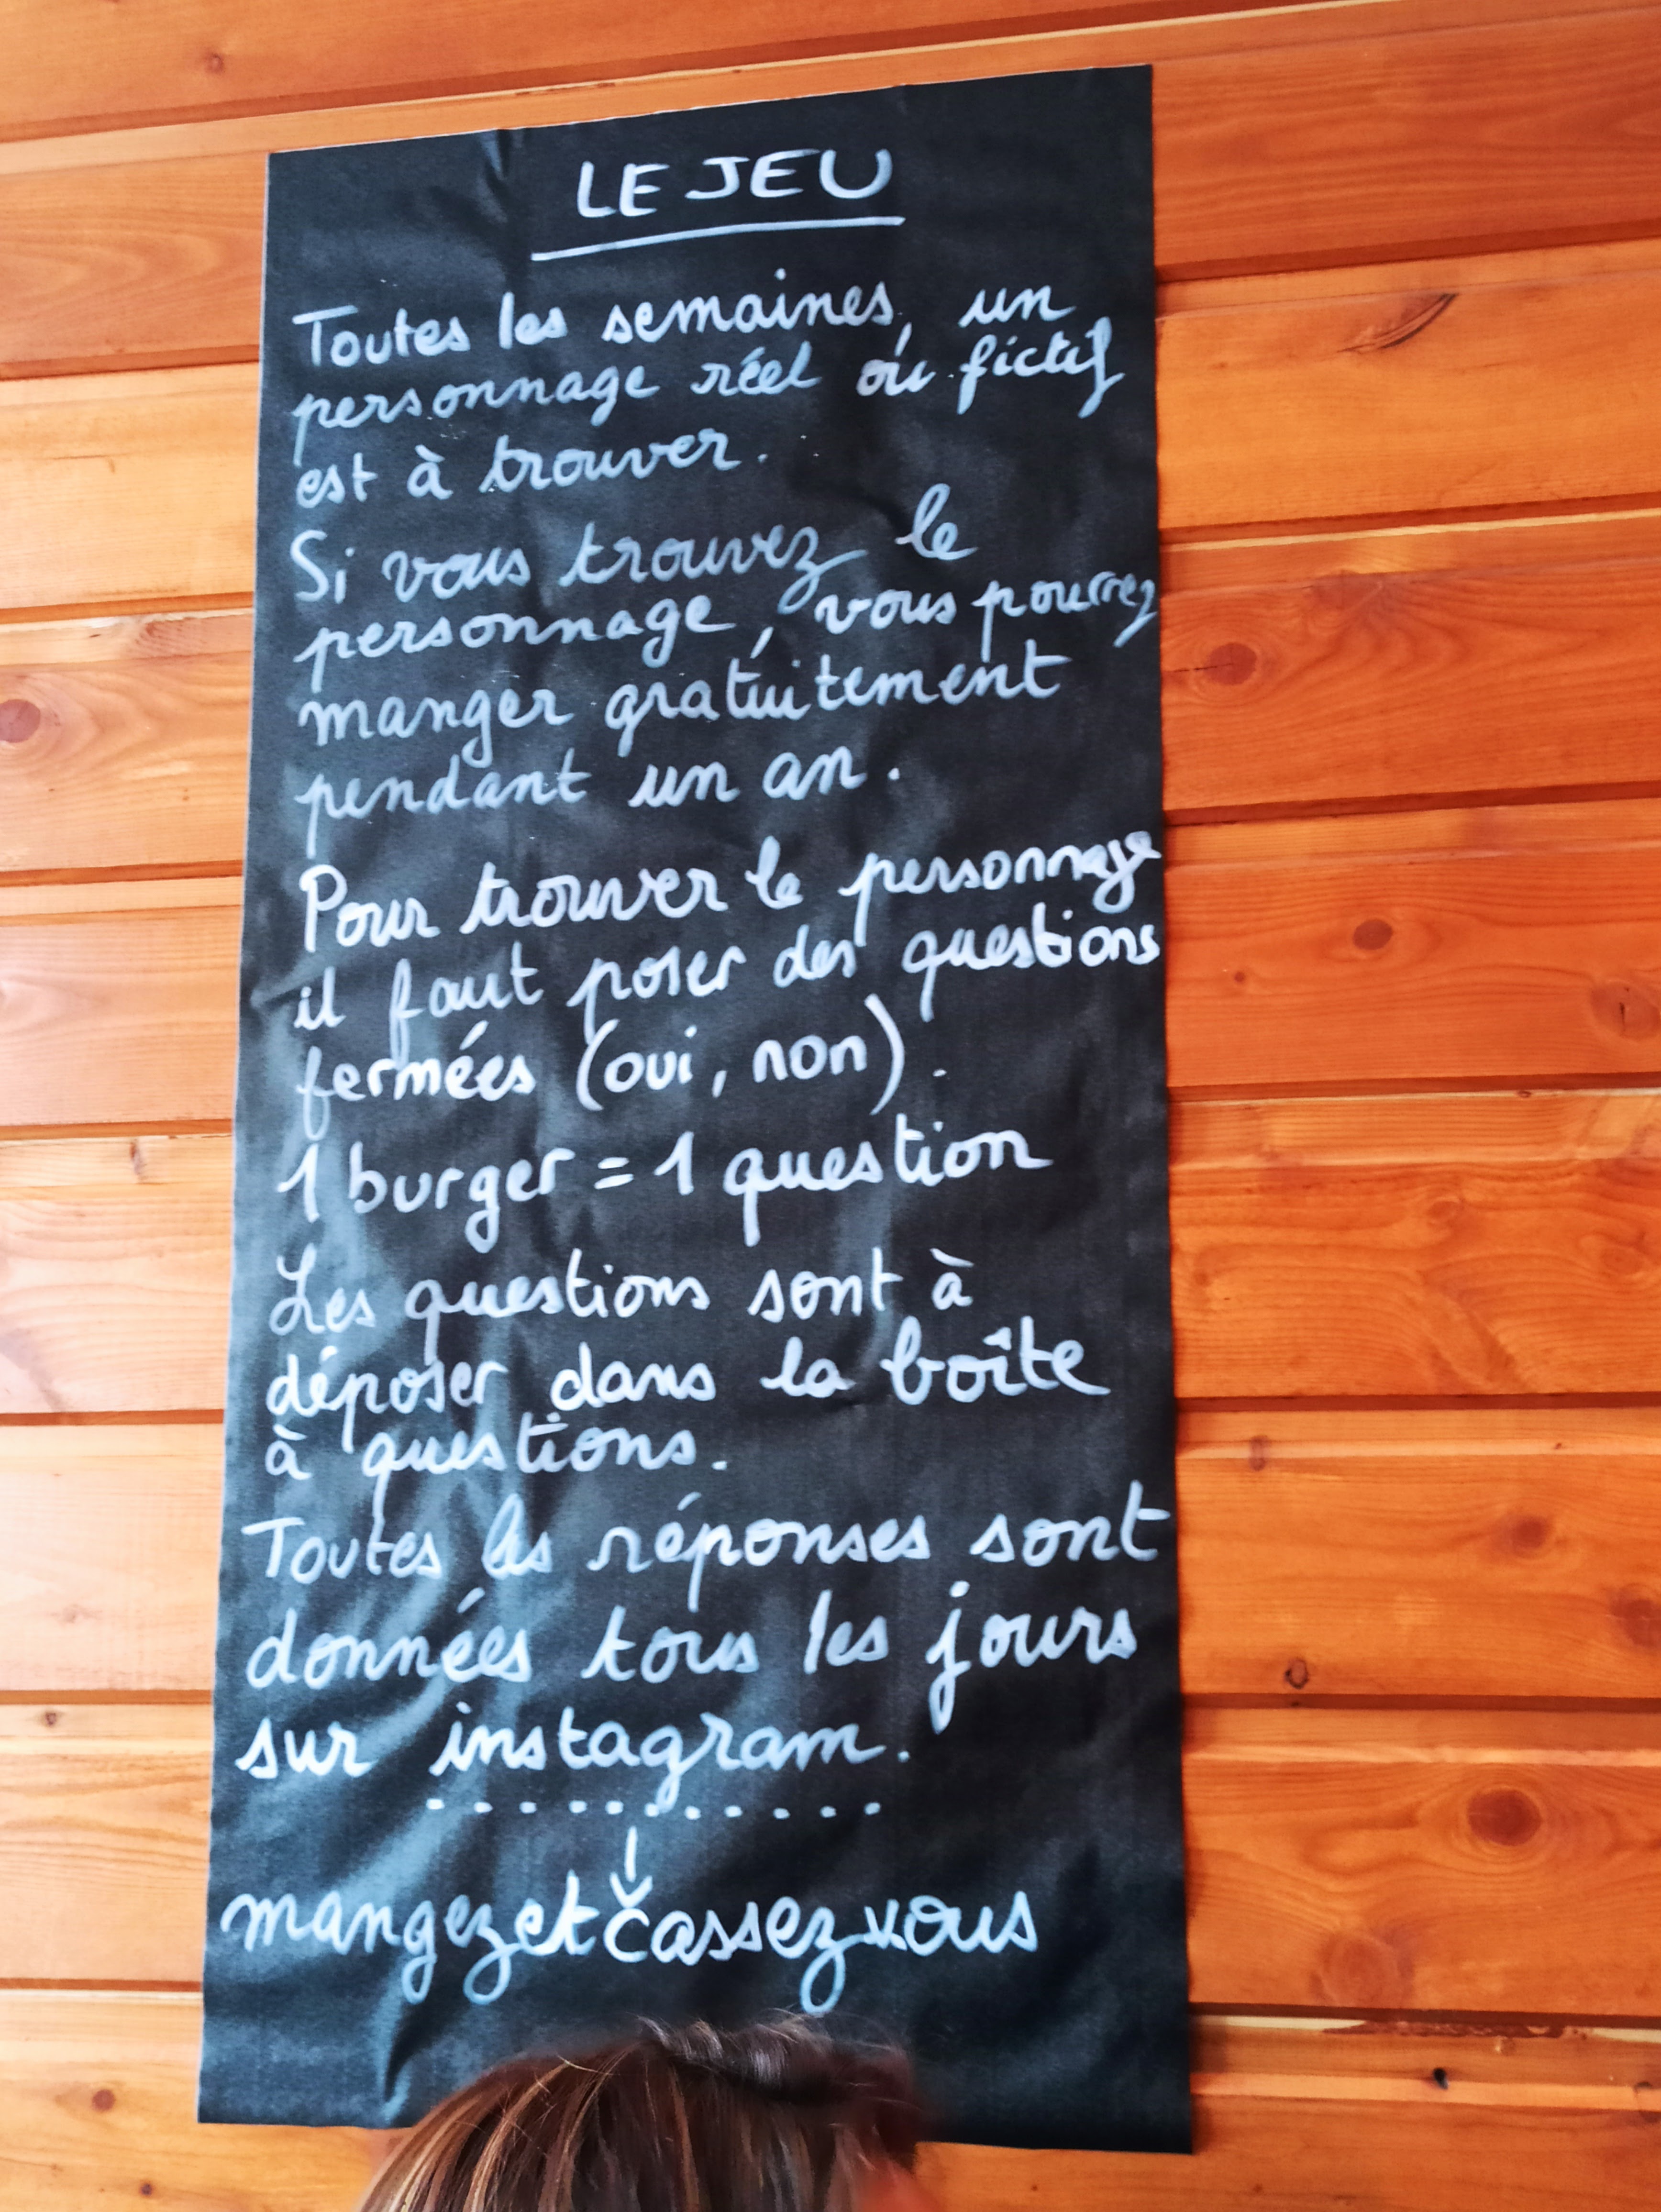 LE JEU
Toutes les semaines, un
personnage réel ou fictif
est à trouver.
Si vous trouvez le
personnage, vous pourrez
manger gratuitement
pendant un an.
Pour trouver le personnage
il faut poser des questions
fermées (oui, non).
1 burger = 1 question
Les questions sont à
déposer dans la boîte
à questions.
Toutes les réponses sont
données tous les jours
sur instagram.
mangezetcassezvous